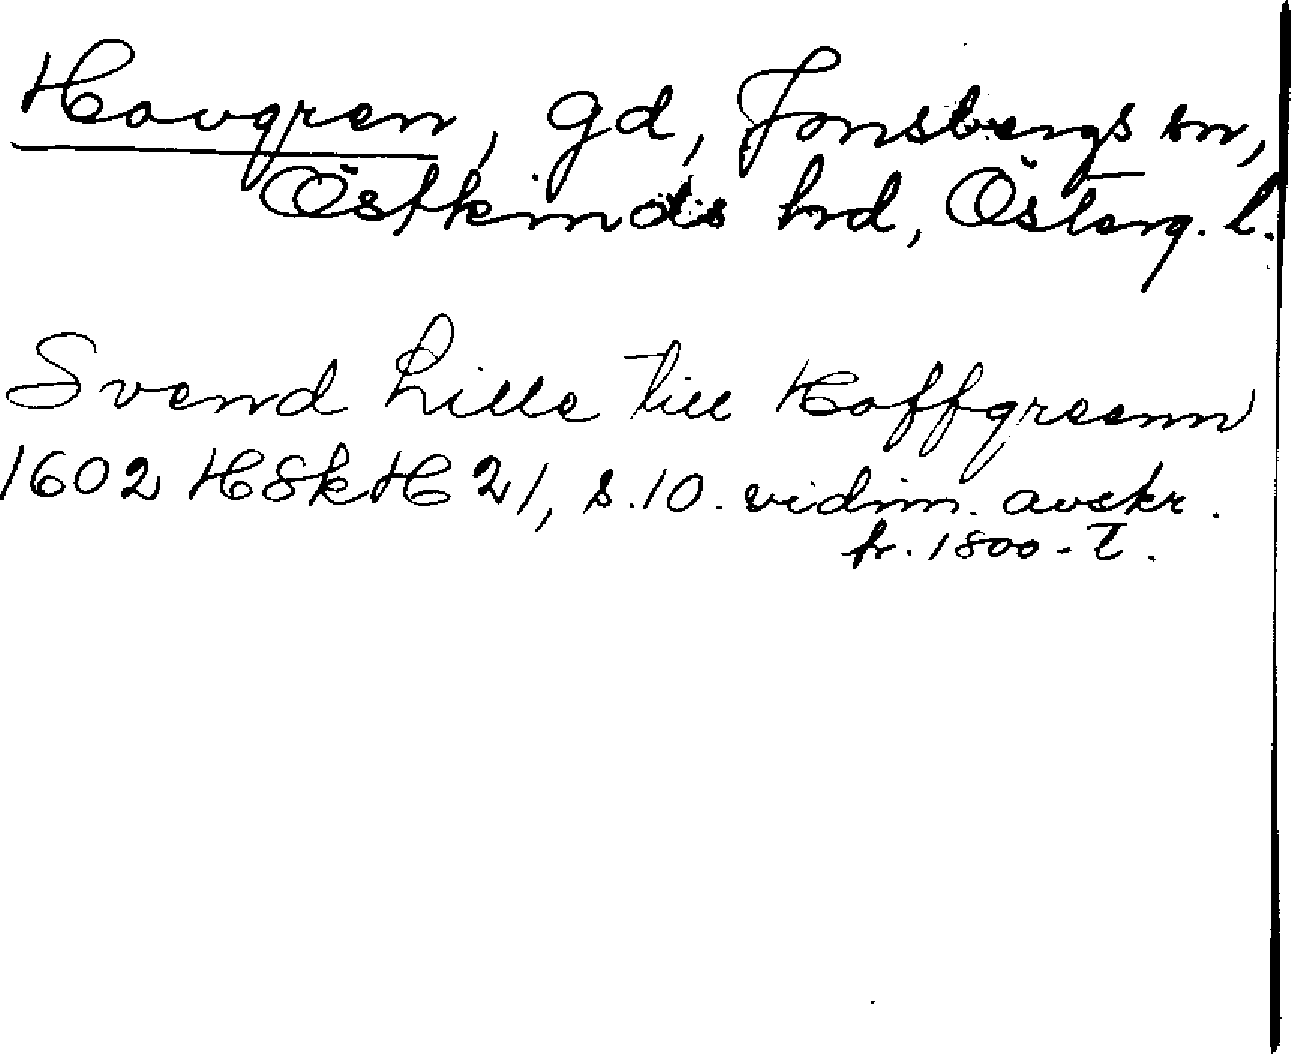 Hovgren, gd, Jonsbergs sn,
Östkinds hrd, Österg. l.
Svend Lille till Hoffgreenn
1602 HSkH 21, s. 10. vidim. avskr.
fr. 1800-t.